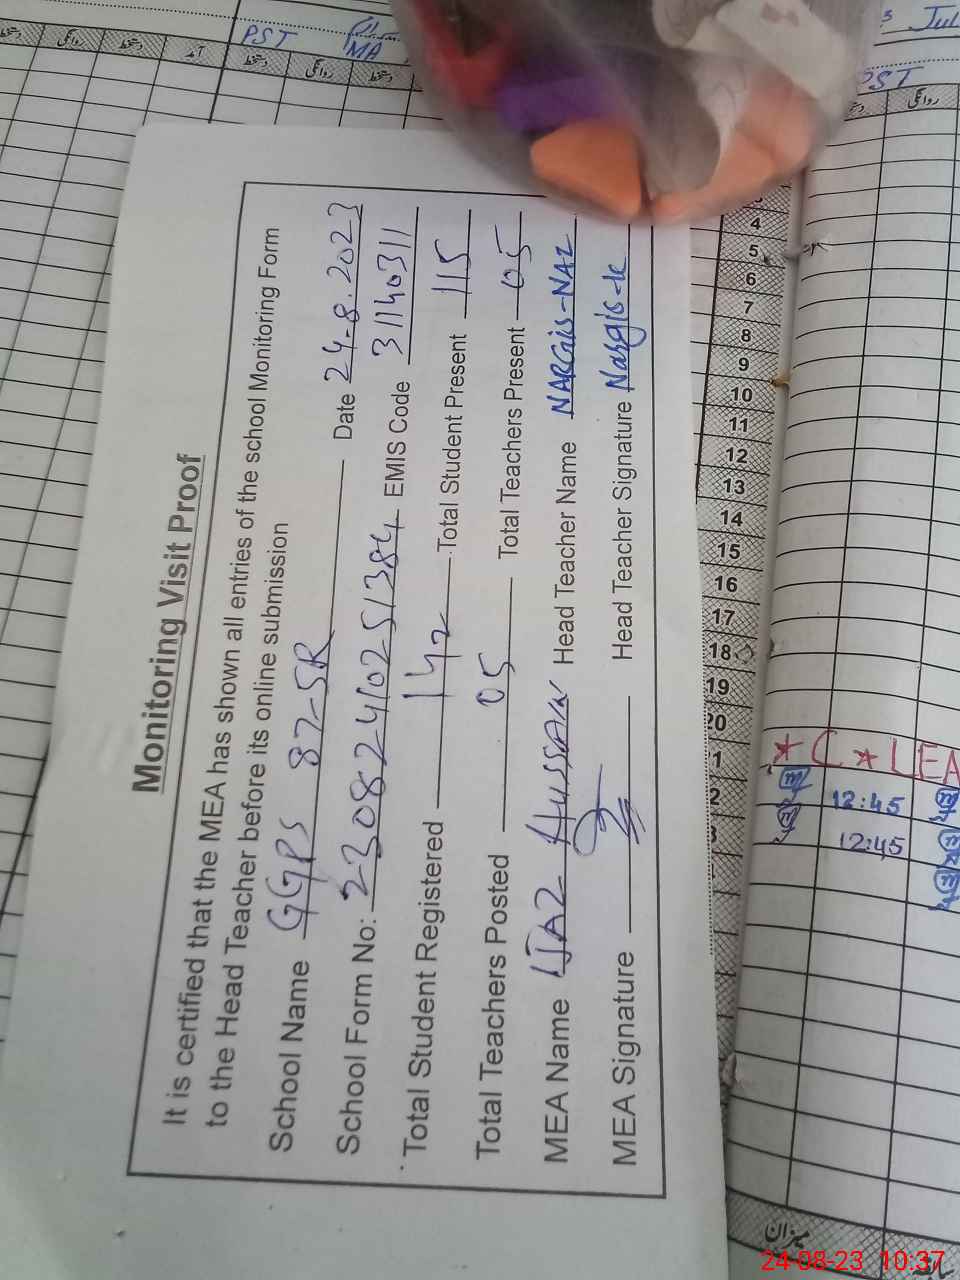 Monitoring Visit Proof
It is certified that the MEA has shown all entries of the school Monitoring Form
to the Head Teacher before its online submission
School Name GGPS 82-5R Date 24-8.2023
School Form No: 23082410251384 EMIS Code 31140311
Total Student Registered 142 Total Student Present 115
Total Teachers Posted 05 Total Teachers Present 05
MEA Name IJAZ HUSSAIN Head Teacher Name NARGIS-NAZ
MEA Signature Head Teacher Signature Nargis-k
PST
MA
دستخط
روانگی
دستخط
آمد
دستخط
روانگی
دستخط
Jul
PST
روانگی
4
5
6
7
8
9
10
11
12
13
14
15
16
17
18
19
20
1
2
3
C LEA
12:45
12:45
میزان
24-08-23 10:37